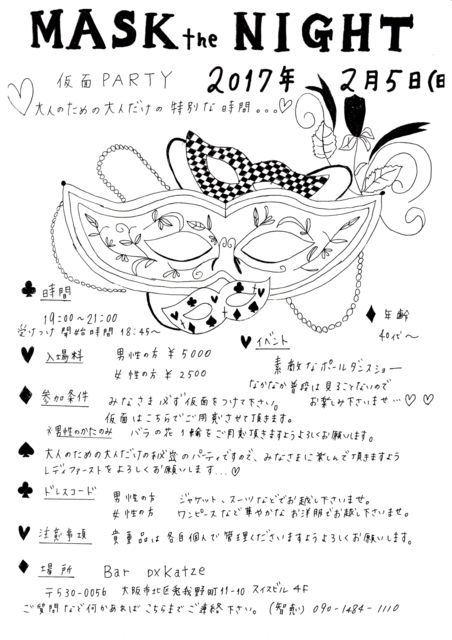 MASK the NIGHT
仮面 PARTY 2017年 2月5日(日
大人のための大人だけの特別な時間...♡
時間
19:00~21:00
受けつけ開始時間 18:45~
年齢
40代~
入場料 男性の方 ¥5000
女性の方 ¥2500
イベント
素敵なポールダンスショー
なかなか普段は見ることないので
お楽しみ下さいませ...♡♡
参加条件 みなさま必ず仮面をつけて下さい。
仮面はこちらでご用意させて頂きます。
※男性のかたのみ バラの花1輪をご用意頂きますようよろしくお願いします。
大人のための大人だけの秘密のパーティですので、みなさまに楽しんで頂きますよう
レディファーストをよろしくお願いします...♡
ドレスコード 男性の方 ジャケット、スーツなどでお越し下さいませ。
女性の方 ワンピースなど華やかなお洋服でお越し下さいませ。
注意事項 貴重品は各自個人で管理くださいますようよろしくお願いします。
場所 Bar DXKatze
〒530-0056 大阪市北区兎我野町11-10 スイスビル4F
ご質問など何かあればこちらまでご連絡下さい。(智恵) 090-1484-1110